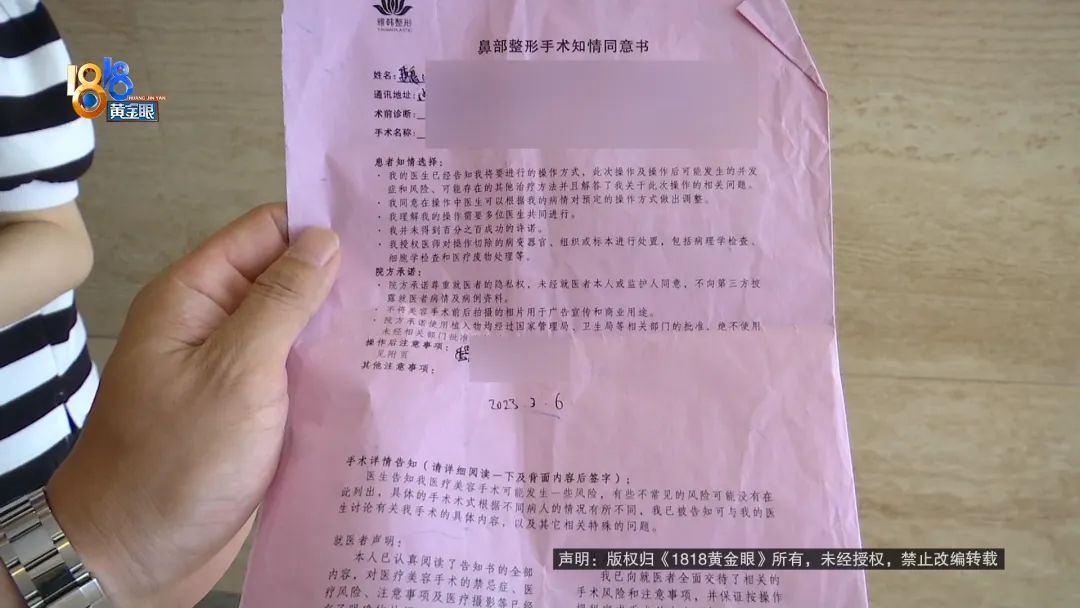 雅韩整形
YAHANPLASTIC
1818
HUANG JIN YAN
黄金眼
鼻部整形手术知情同意书
姓名：
通讯地址：
术前诊断：
手术名称：
患者知情选择：
· 我的医生已经告知我将要进行的操作方式，此次操作及操作后可能发生的并发
症和风险、可能存在的其他治疗方法并且解答了我关于此次操作的相关问题。
· 我同意在操作中医生可以根据我的病情对预定的操作方式做出调整。
· 我理解我的操作需要多位医生共同进行。
· 我并未得到百分之百成功的许诺。
· 我授权医师对操作切除的病变器官、组织或标本进行处置，包括病理学检查、
细胞学检查和医疗废物处理等。
院方承诺：
· 院方承诺尊重就医者的隐私权，未经就医者本人或监护人同意，不向第三方披
露就医者病情及病例资料。
· 不将美容手术前后拍摄的相片用于广告宣传和商业用途。
· 院方承诺使用植入物均经过国家管理局、卫生局等相关部门的批准，绝不使用
未经相关部门批准
操作后注意事项：
见附页
其他注意事项：
2023.3.6
手术详情告知（请详细阅读一下及背面内容后签字）；
医生告知我医疗美容手术可能发生一些风险，有些不常见的风险可能没有在
此列出，具体的手术术式根据不同病人的情况有所不同，我已被告知可与我的医
生讨论有关我手术的具体内容，以及其它相关特殊的问题。
就医者声明：
本人已认真阅读了告知书的全部
内容，对医疗美容手术的禁忌症、医
疗风险、注意事项及医疗摄影等已经
我已向就医者全面交待了相关的
手术风险和注意事项，并保证按操作
声明：版权归《1818黄金眼》所有，未经授权，禁止改编转载